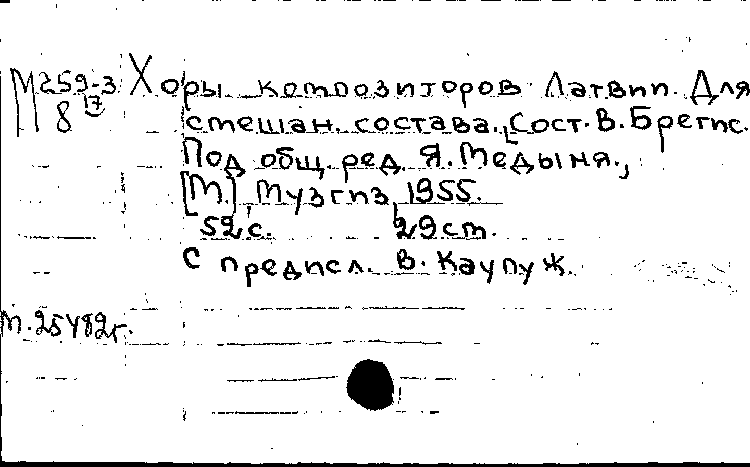 М259-3 Хоры композиторов Латвии. Для
8 17 смешан. состава. [Сост. В. Брегис.
Под общ. ред. Я. Медыня.,
[М.], Музгиз, 1955.
52 с. 29 cm.
С предисл. В. Каупуж.
М.25482г.